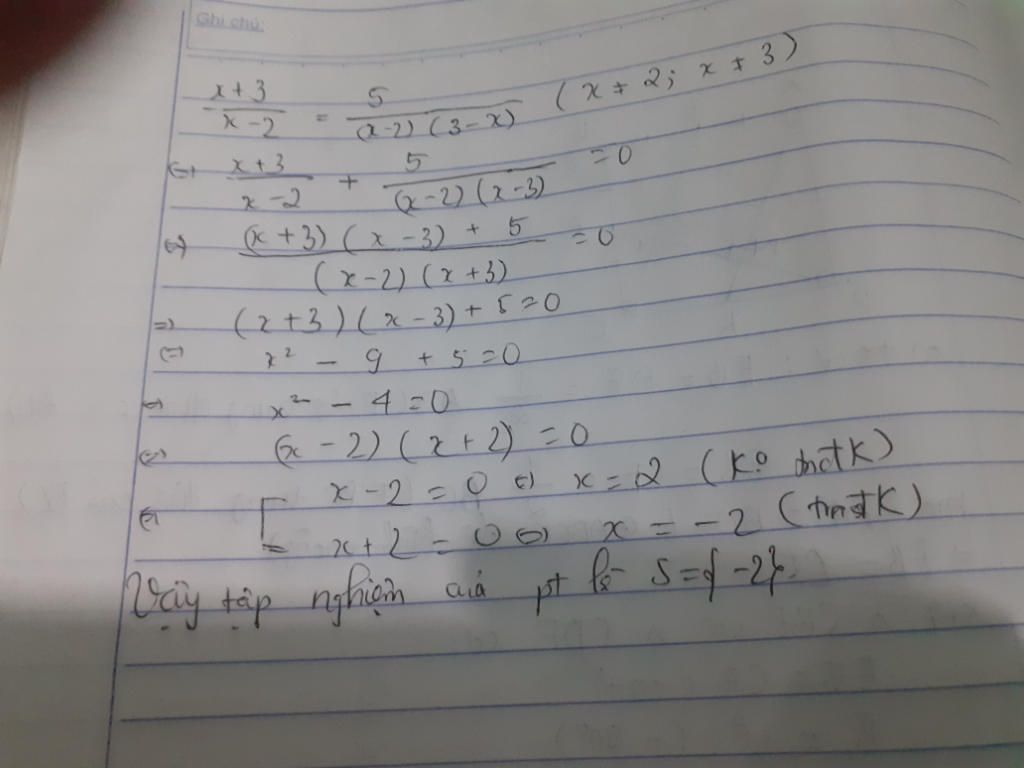 Ghi chú:
x+3/x-2 = 5/(x-2)(3-x) (x ≠ 2; x ≠ 3)
⇔ x+3/x-2 + 5/(x-2)(x-3) = 0
⇔ (x+3)(x-3)+5/(x-2)(x+3) = 0
⇒ (x+3)(x-3)+5=0
⇔ x² - 9 + 5 = 0
⇔ x² - 4 = 0
⇔ (x-2)(x+2) = 0
⇔ [ x-2 = 0 ⇔ x = 2 (Ko tmđK)
x+2 = 0 ⇔ x = -2 (tmđK)
Vậy tập nghiệm của pt là S={-2}.